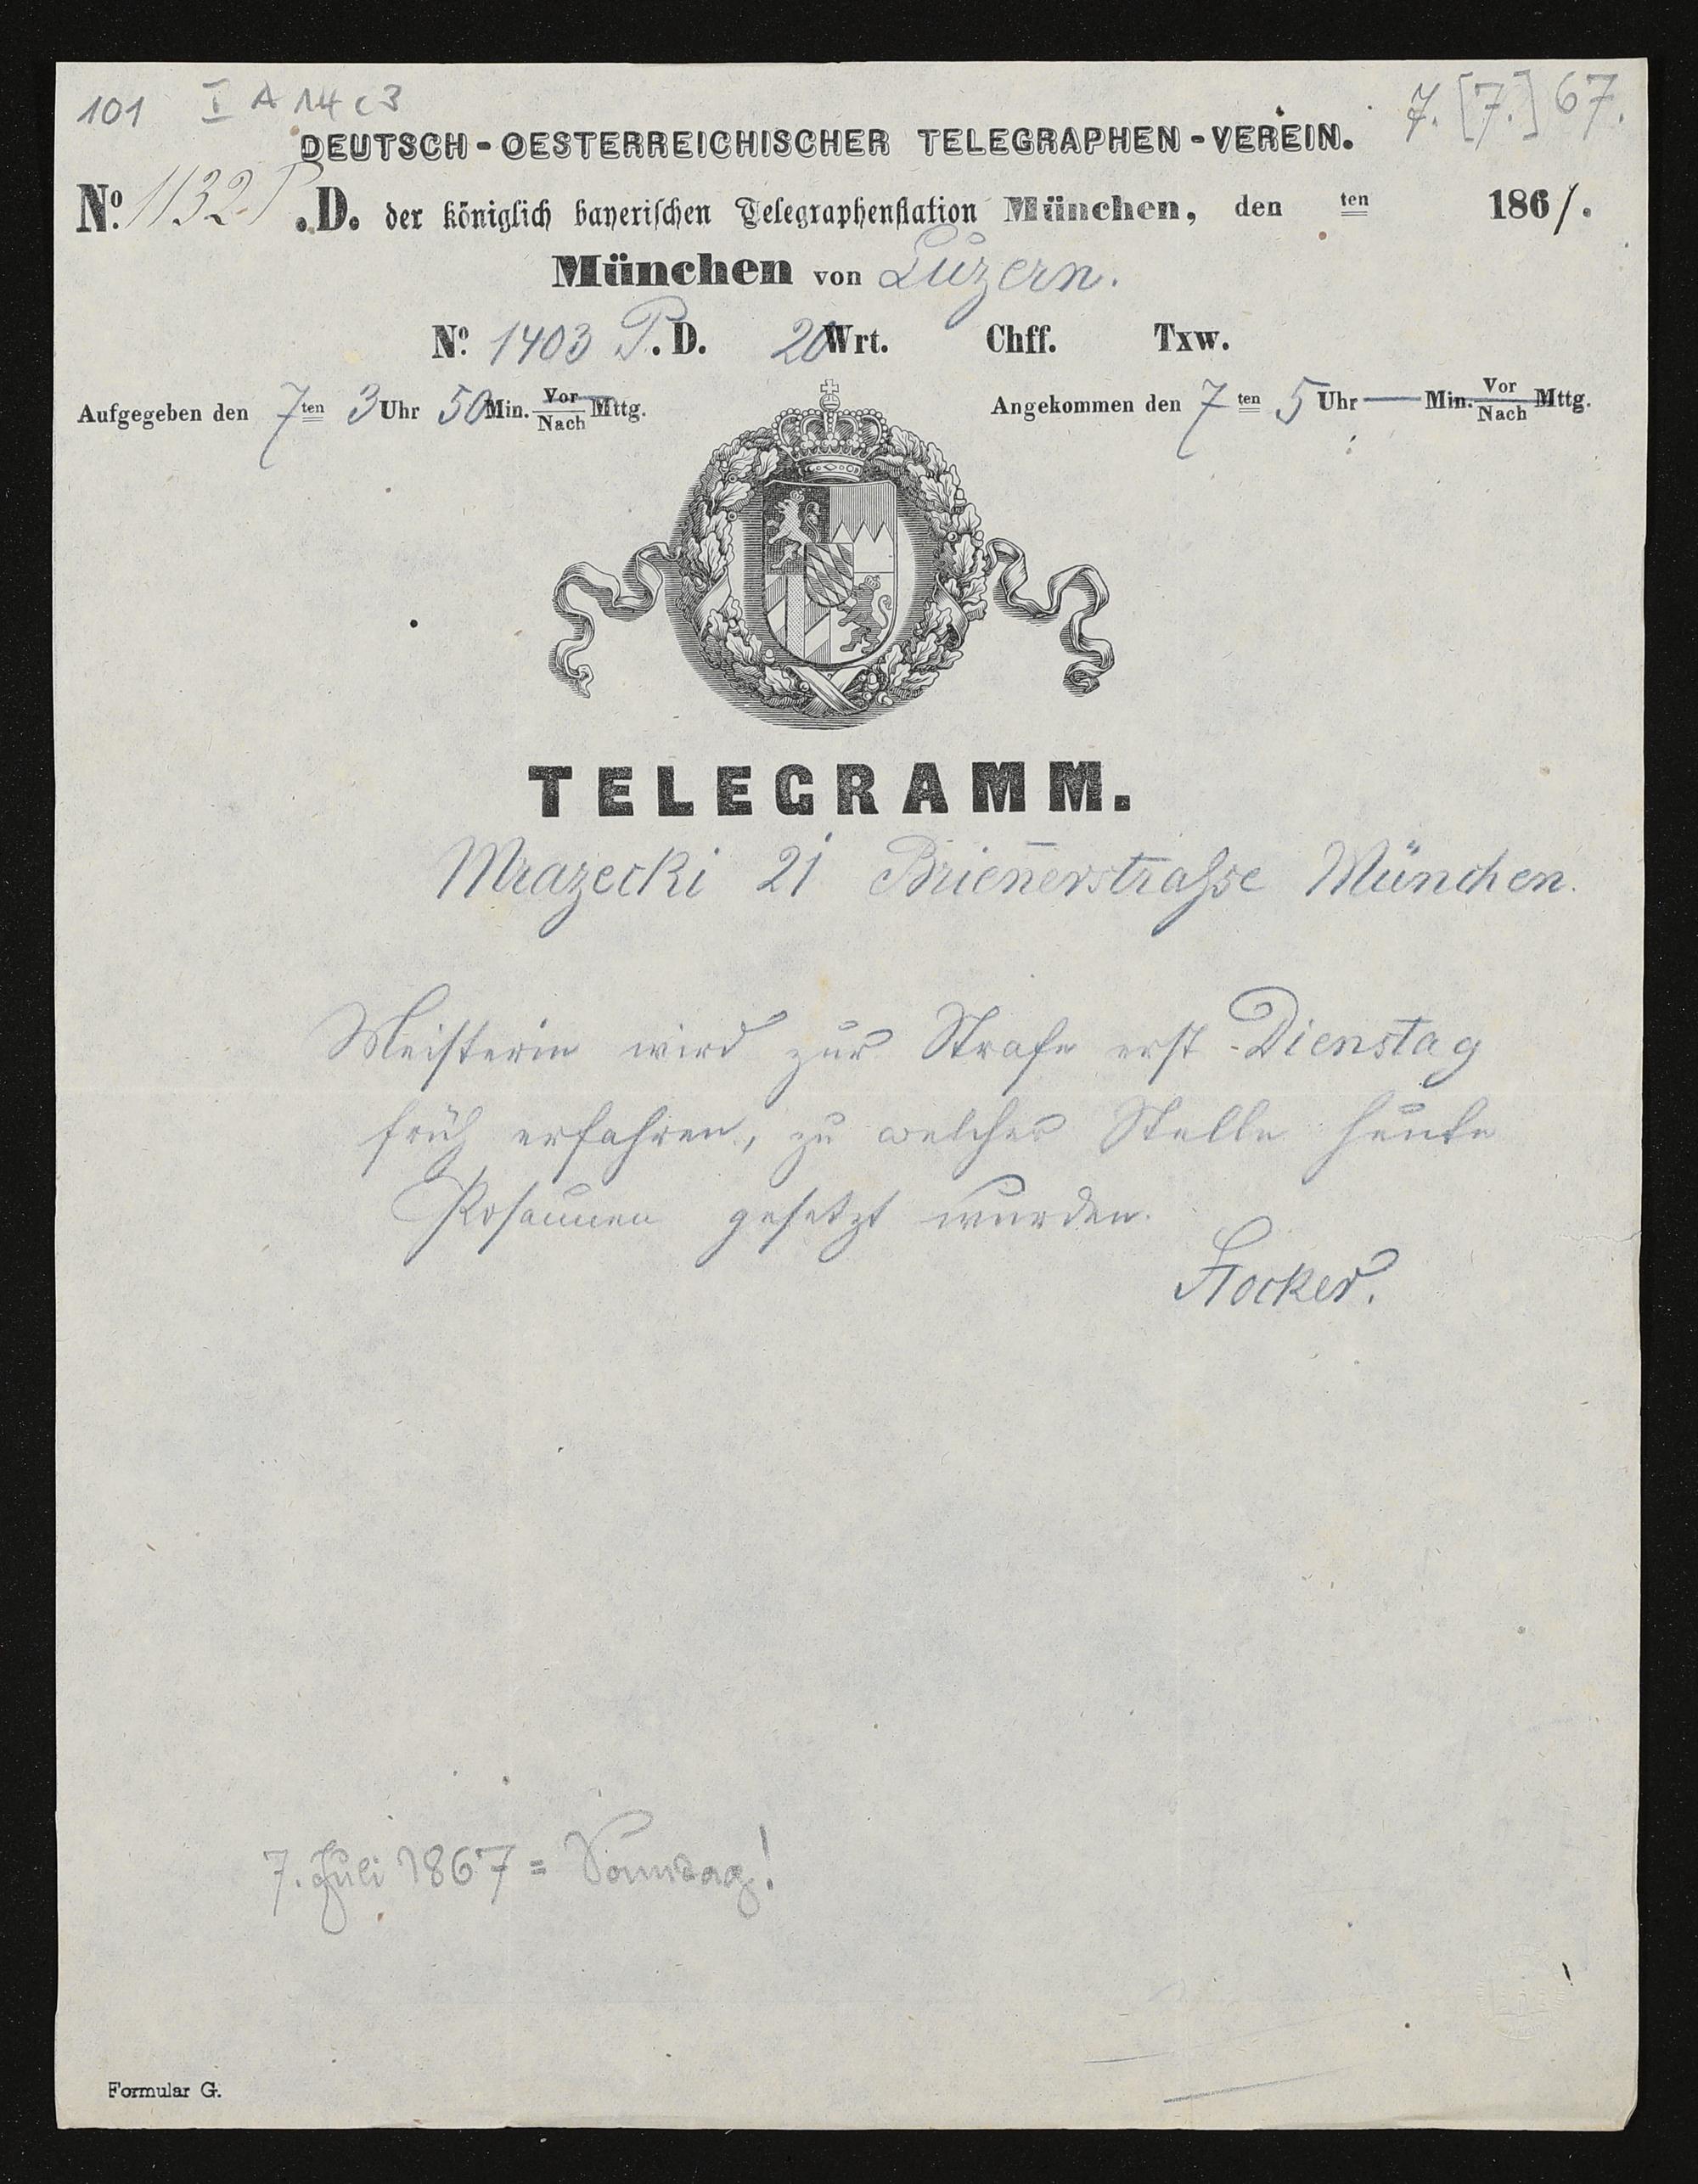 101 I A 14 c 3
7. [7.] 67.
DEUTSCH-OESTERREICHISCHER TELEGRAPHEN-VEREIN.
No. 1132 P. D. der königlich bayerischen Telegraphenstation München, den ten 186/.
München von Luzern.
No. 1403 P. D. 20 Wrt. Chff. Txw.
Aufgegeben den 7ten 3 Uhr 50 Min. Vor/Nach Mttg. Angekommen den 7ten 5 Uhr — Min. Vor/Nach Mttg.
TELEGRAMM.
Mrazecki 21 Brien̄erstrasse München.
Meisterin wird zur Strafe erst Dienstag
früh erfahren, zu welcher Stelle heute
Posaunen gesetzt wurden.
Stocker.
7. Juli 1867 = Sonntag!
Formular G.